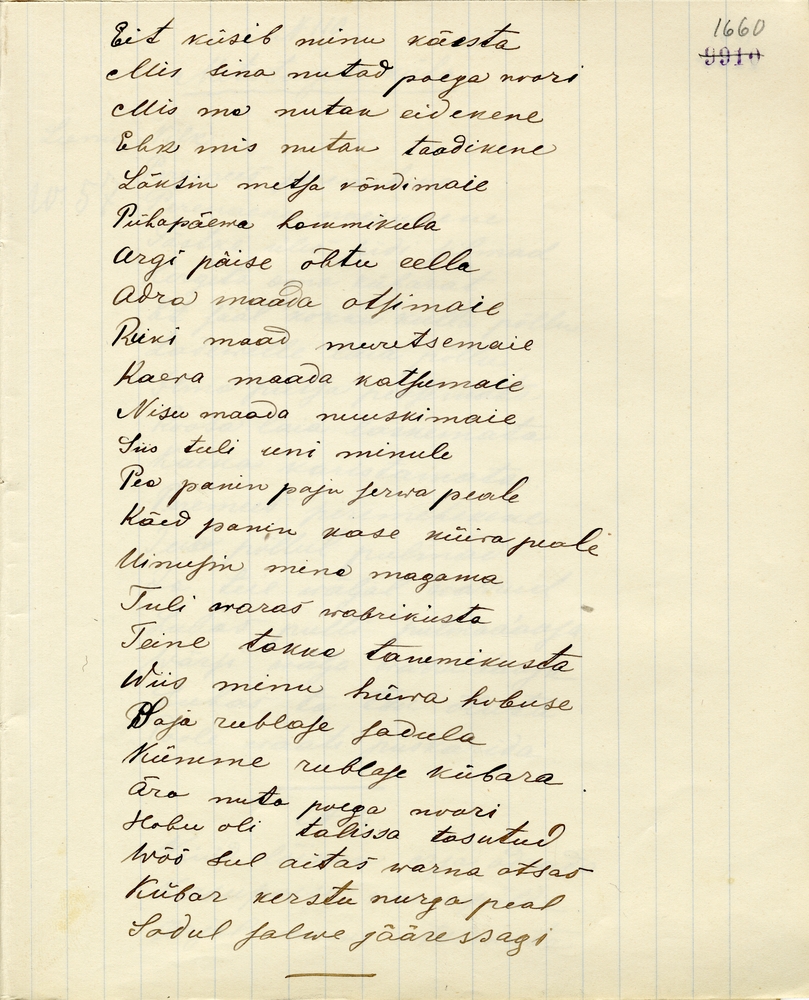 1660
9910
Eit küsib minu käesta
Mis sina nutad poega noori
Mis ma nutan eidekene
Ehk mis nutan taadikene
Läksin metsa kõndimaie
Pühapäewa hommikula
Argi päise õhtu eella
Adra maada otsimaie
Rüki maad muretsemaie
Kaera maada katsumaie
Nisu maada nuuskimaie
Siis tuli uni minule
Pea panin paju serwa peale
Käed panin kase küira peale
Uinusin mina magama
Tuli waras wabrikusta
Teine takka tanemikusta
Wiis minu hüwa hobuse
Saja rublase sadula
Kümme rublase kübara
Ära nuta poega noori
Hobu oli tallissa tasutud
Wöö sul aitas warna otsas
Kübar kerstu nurga peal
Sadul salwe jääressagi